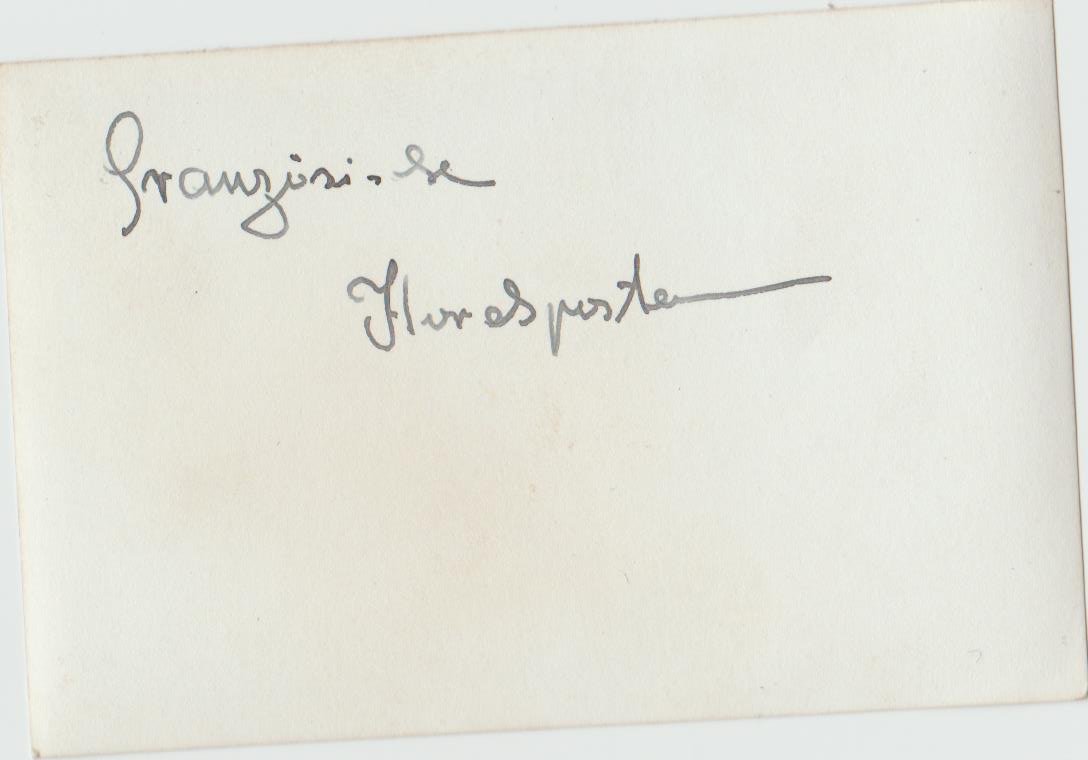 Französische
Horchposten